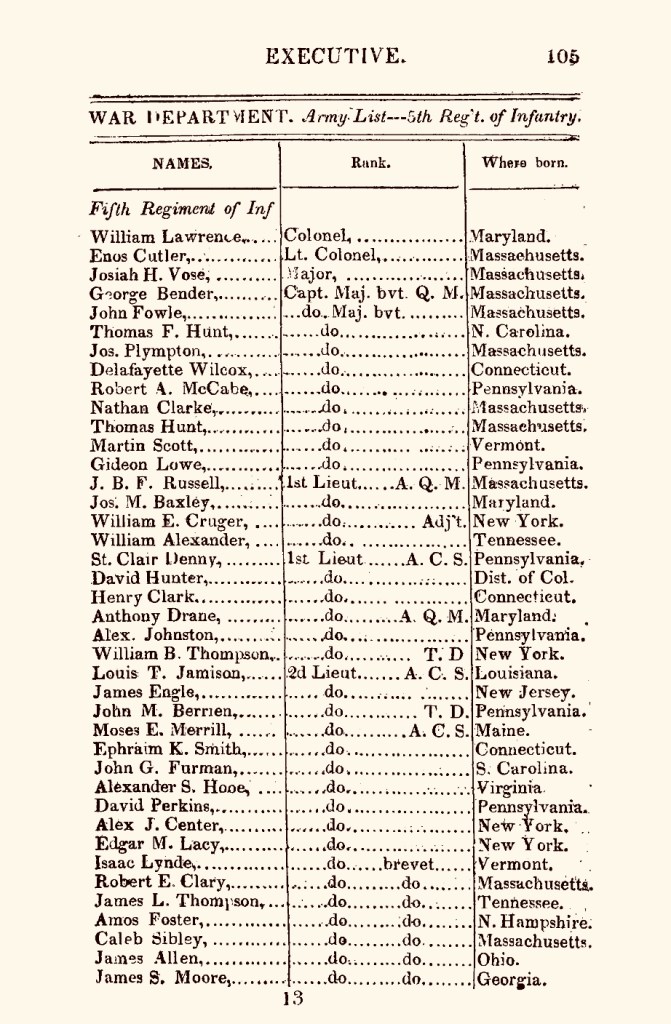 EXECUTIVE. 105
WAR DEPARTMENT. Army List---5th Reg't. of Infantry.
NAMES. Rank. Where born.
Fifth Regiment of Inf
William Lawrence,..... Colonel, ................. Maryland.
Enos Cutler,............ Lt. Colonel,............. Massachusetts.
Josiah H. Vose, .......... Major, .................. Massachusetts.
George Bender,.......... Capt. Maj. bvt. Q. M. Massachusetts.
John Fowle,.............. ...do. Maj. bvt. ......... Massachusetts.
Thomas F. Hunt,....... ......do................... N. Carolina.
Jos. Plympton,........... ......do................... Massachusetts.
Delafayette Wilcox,.... ......do................... Connecticut.
Robert A. McCabe,.... ......do................... Pennsylvania.
Nathan Clarke,.......... ......do................... Massachusetts.
Thomas Hunt,........... ......do................... Massachusetts.
Martin Scott,............. ......do................... Vermont.
Gideon Lowe,............ ......do................... Pennsylvania.
J. B. F. Russell,......... 1st Lieut......A. Q. M. Massachusetts.
Jos. M. Baxley,.......... ......do................... Maryland.
William E. Cruger, .... ......do............ Adj't. New York.
William Alexander, .... ......do.. ................. Tennessee.
St. Clair Denny,......... 1st Lieut ......A. C. S. Pennsylvania.
David Hunter,............ ......do................... Dist. of Col.
Henry Clark.............. ......do................... Connecticut.
Anthony Drane, ......... ......do.........A. Q. M. Maryland.
Alex. Johnston,.......... ......do................... Pennsylvania.
William B. Thompson,.. ......do.......... T. D New York.
Louis T. Jamison,...... 2d Lieut....... A. C. S. Louisiana.
James Engle,............. ......do................... New Jersey.
John M. Berrien,........ ......do............ T. D. Pennsylvania.
Moses E. Merrill, ...... ......do..........A. C. S. Maine.
Ephraim K. Smith,..... ......do................... Connecticut.
John G. Furman,....... ......do................... S. Carolina.
Alexander S. Hooe, .... ......do................... Virginia
David Perkins,........... ......do................... Pennsylvania.
Alex J. Center,.......... ......do................... New York.
Edgar M. Lacy,......... ......do................... New York.
Isaac Lynde,............. ......do.....brevet...... Vermont.
Robert E. Clary,........ ......do.........do........ Massachusetts.
James L. Thompson,... ......do.........do........ Tennessee.
Amos Foster,............ ......do.........do........ N. Hampshire.
Caleb Sibley, ............ ......do.........do........ Massachusetts.
James Allen,............. ......do.........do........ Ohio.
James S. Moore,......... ......do.........do........ Georgia.
13